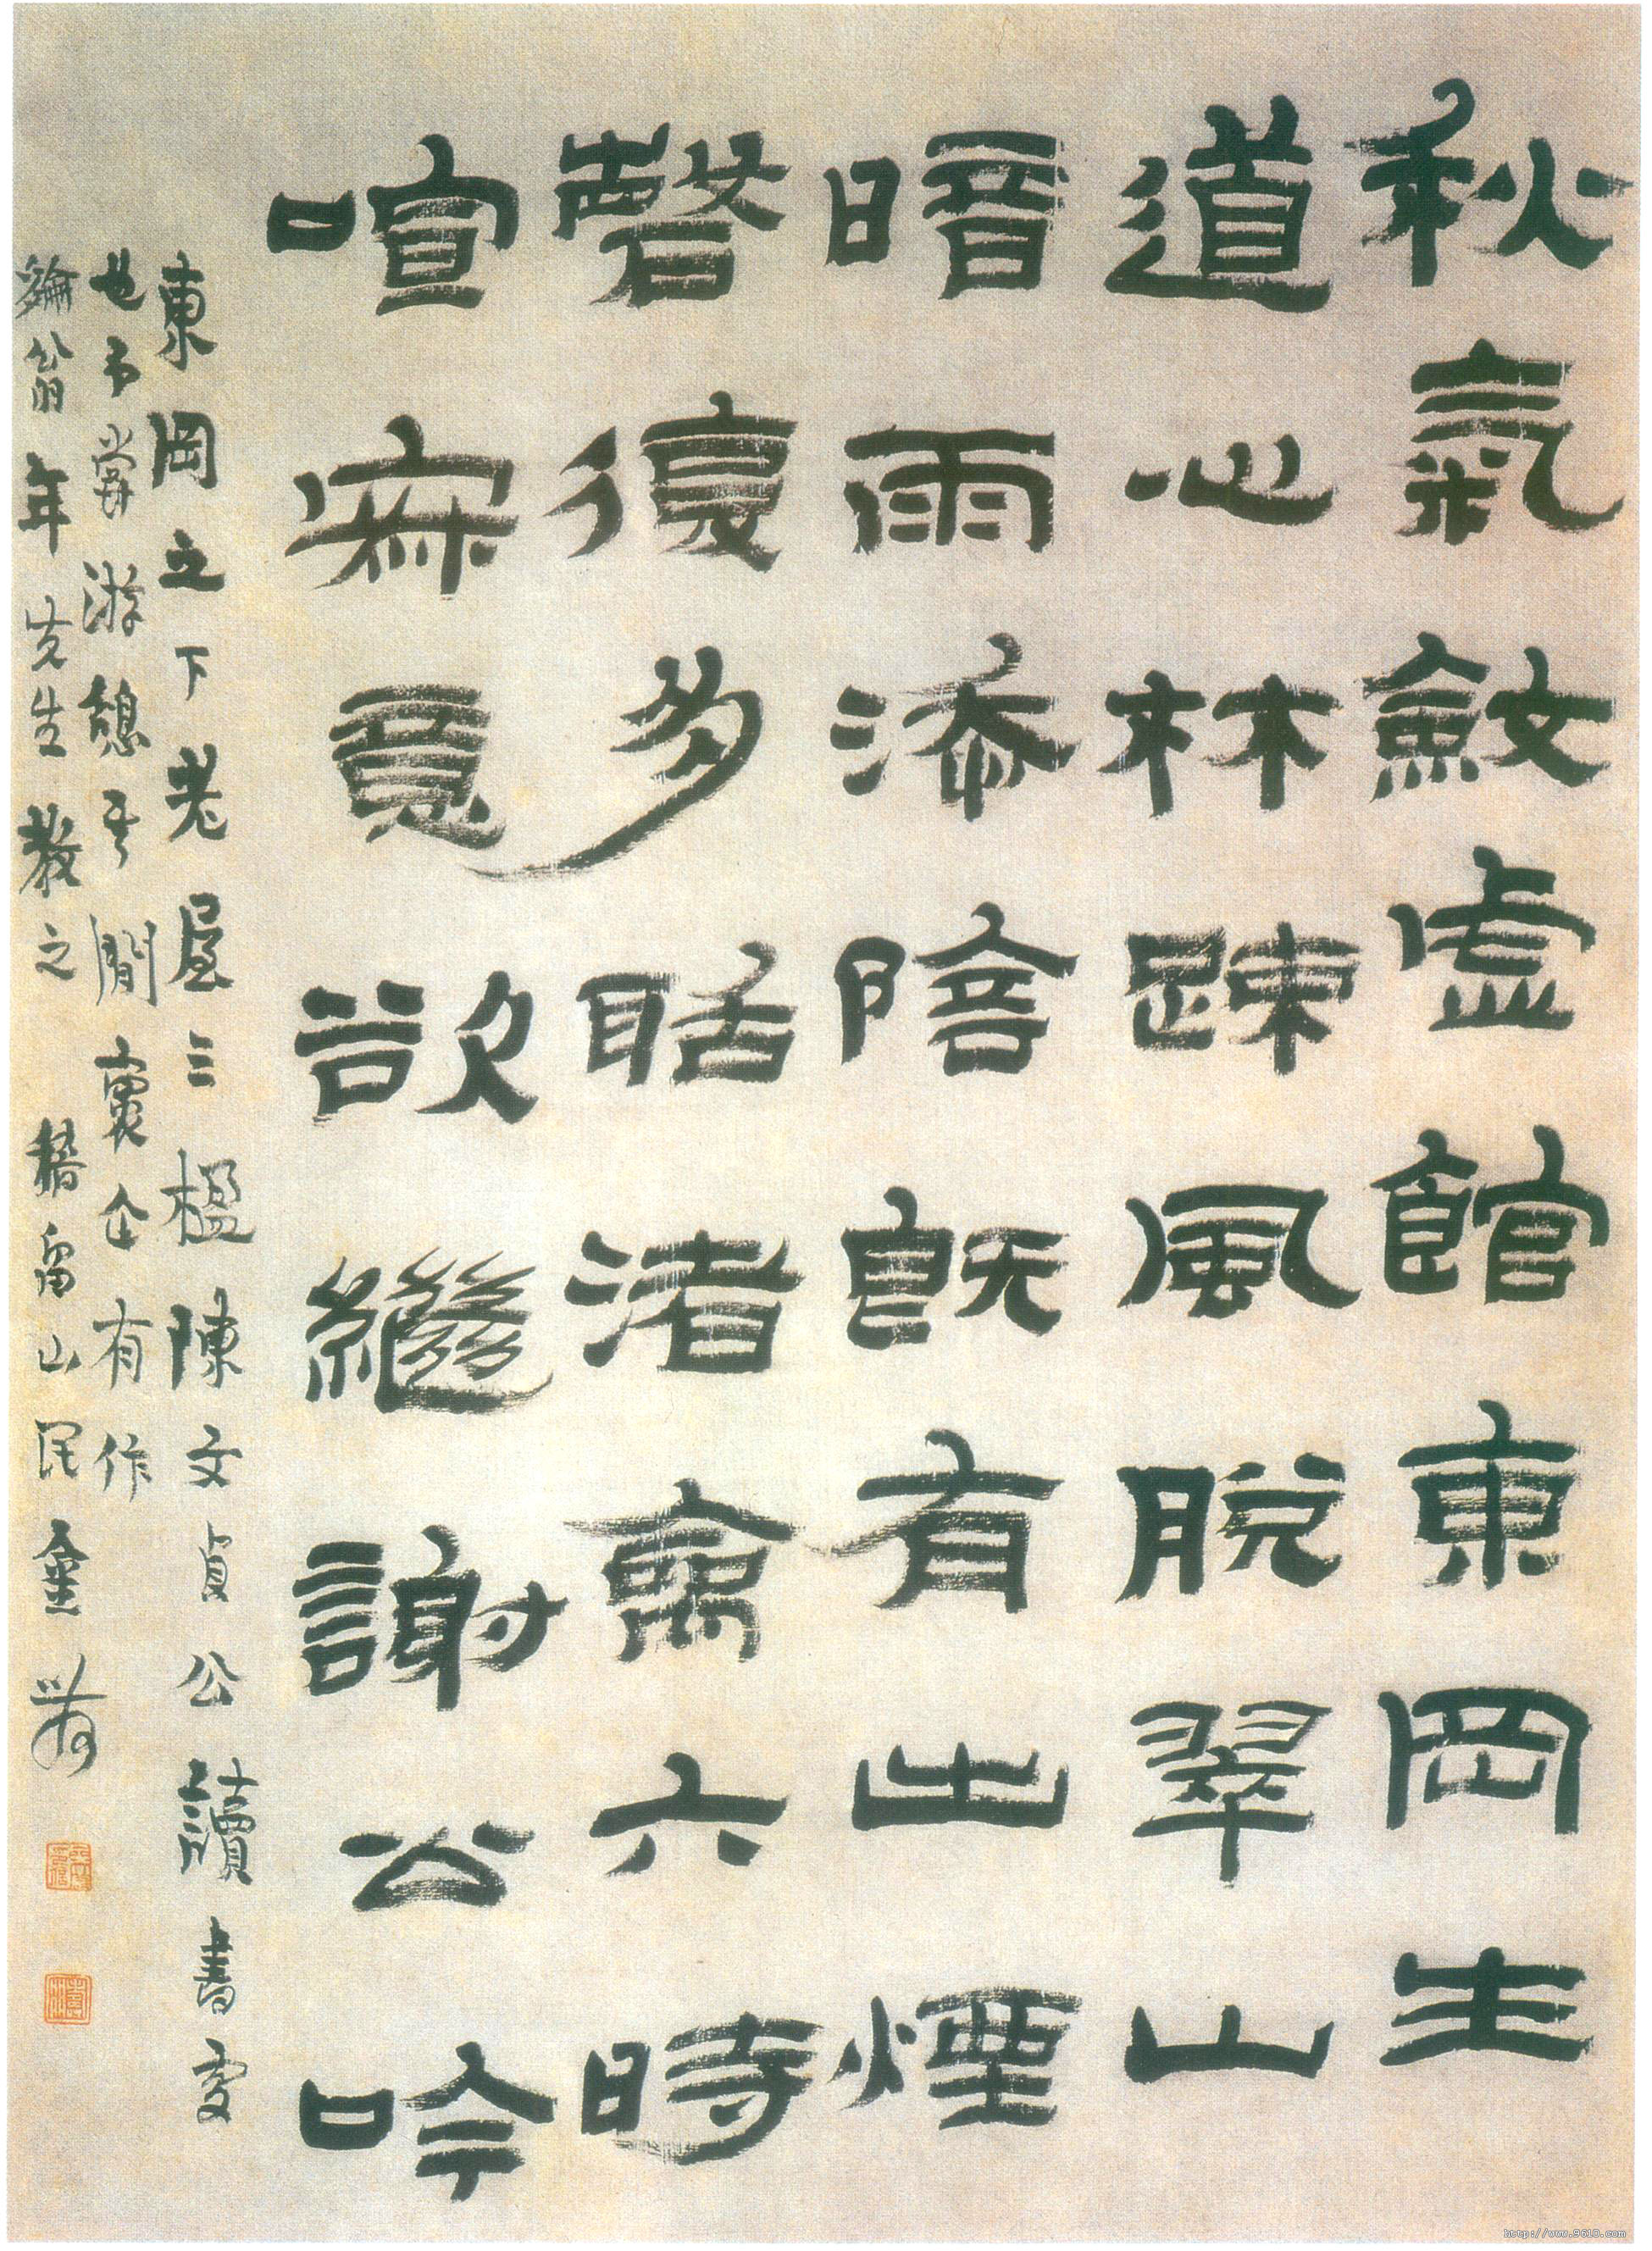 秋氣斂虛館東岡生
道心林疎風脫翠山
暗雨添陰既有出煙
磬復多聒渚禽六時
喧寂意欲繼謝公吟
東岡之下老屋三楹陳文貞公讀書處
也予嘗游憩其間企有作
綸翁年先生教之 稽留山民金農
http://www.9610.com